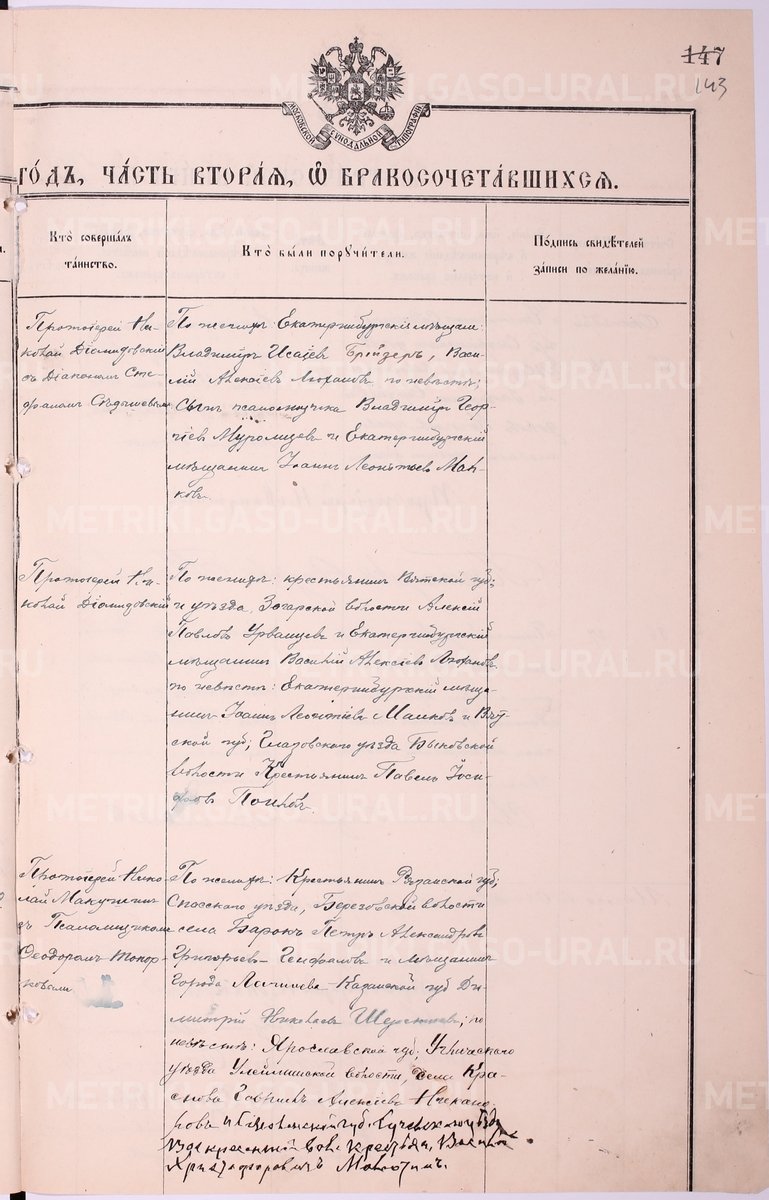 147
143
МОСКОВСКОЙ СѴНОДАЛЬНОЙ ТИПОГРАФІИ
ГО́ДЪ, ЧА́СТЬ ВТОРА́Я, Ѡ҆ БРАКОСОЧЕТА́ВШИХСЯ.
Кто̀ соверша́лъ
та́инство.
Кто̀ бы́ли пор̾учи́тели.
По́дпись свидѣ́телей
за́писи по жела́нїю.
Протоіерей Ни-
колай Діомидовскій
съ Діакономъ Сте-
фаномъ
По женихѣ Екатеринбургскіе мѣщане:
Владиміръ Исаевъ Брейзеръ, Васи-
лій Алексіевъ по невѣстѣ:
Сынъ псаломщика Владиміръ Геор-
гіев Муромцевъ и Екатеринбургскій
мѣщанинъ Іоаннъ Леонтьевъ Мал-
ковъ.
Протоіерей Ни-
колай Діомидовскій
По женихѣ: крестьянинъ Вятской губ;
и уѣзда, волости Алексій
Павловъ Урванцевъ и Екатеринбургскій
мѣщанинъ Василій Алексіевъ
по невѣстѣ: Екатеринбургскій мѣща-
нинъ Іоаннъ Леонтіевъ Малковъ и Вят-
ской губ; Глазовского уѣзда Быковской
волости Крестьянинъ Павелъ Іоси-
фовъ
Протоіерей Нико-
лай
съ Псаломщикомъ
Феодоромъ Топор-
ковымъ
По женихѣ: Крестьянинъ Рязанской губ;
Спасского уѣзда, Березовской волости
села Петръ Александровъ
Григорьевъ и мѣщанинъ
города Лаишева Казанской губ Ди-
митрій Николаевъ по
невѣстѣ: Ярославской губ; Угличского
уѣзда волости, села Кра-
снова Гавріилъ Алексіевъ Никано-
ровъ и губ. уѣзда
вол. крестьян. Василій
Христофоровичъ
METRIKI.GASO-URAL.RU